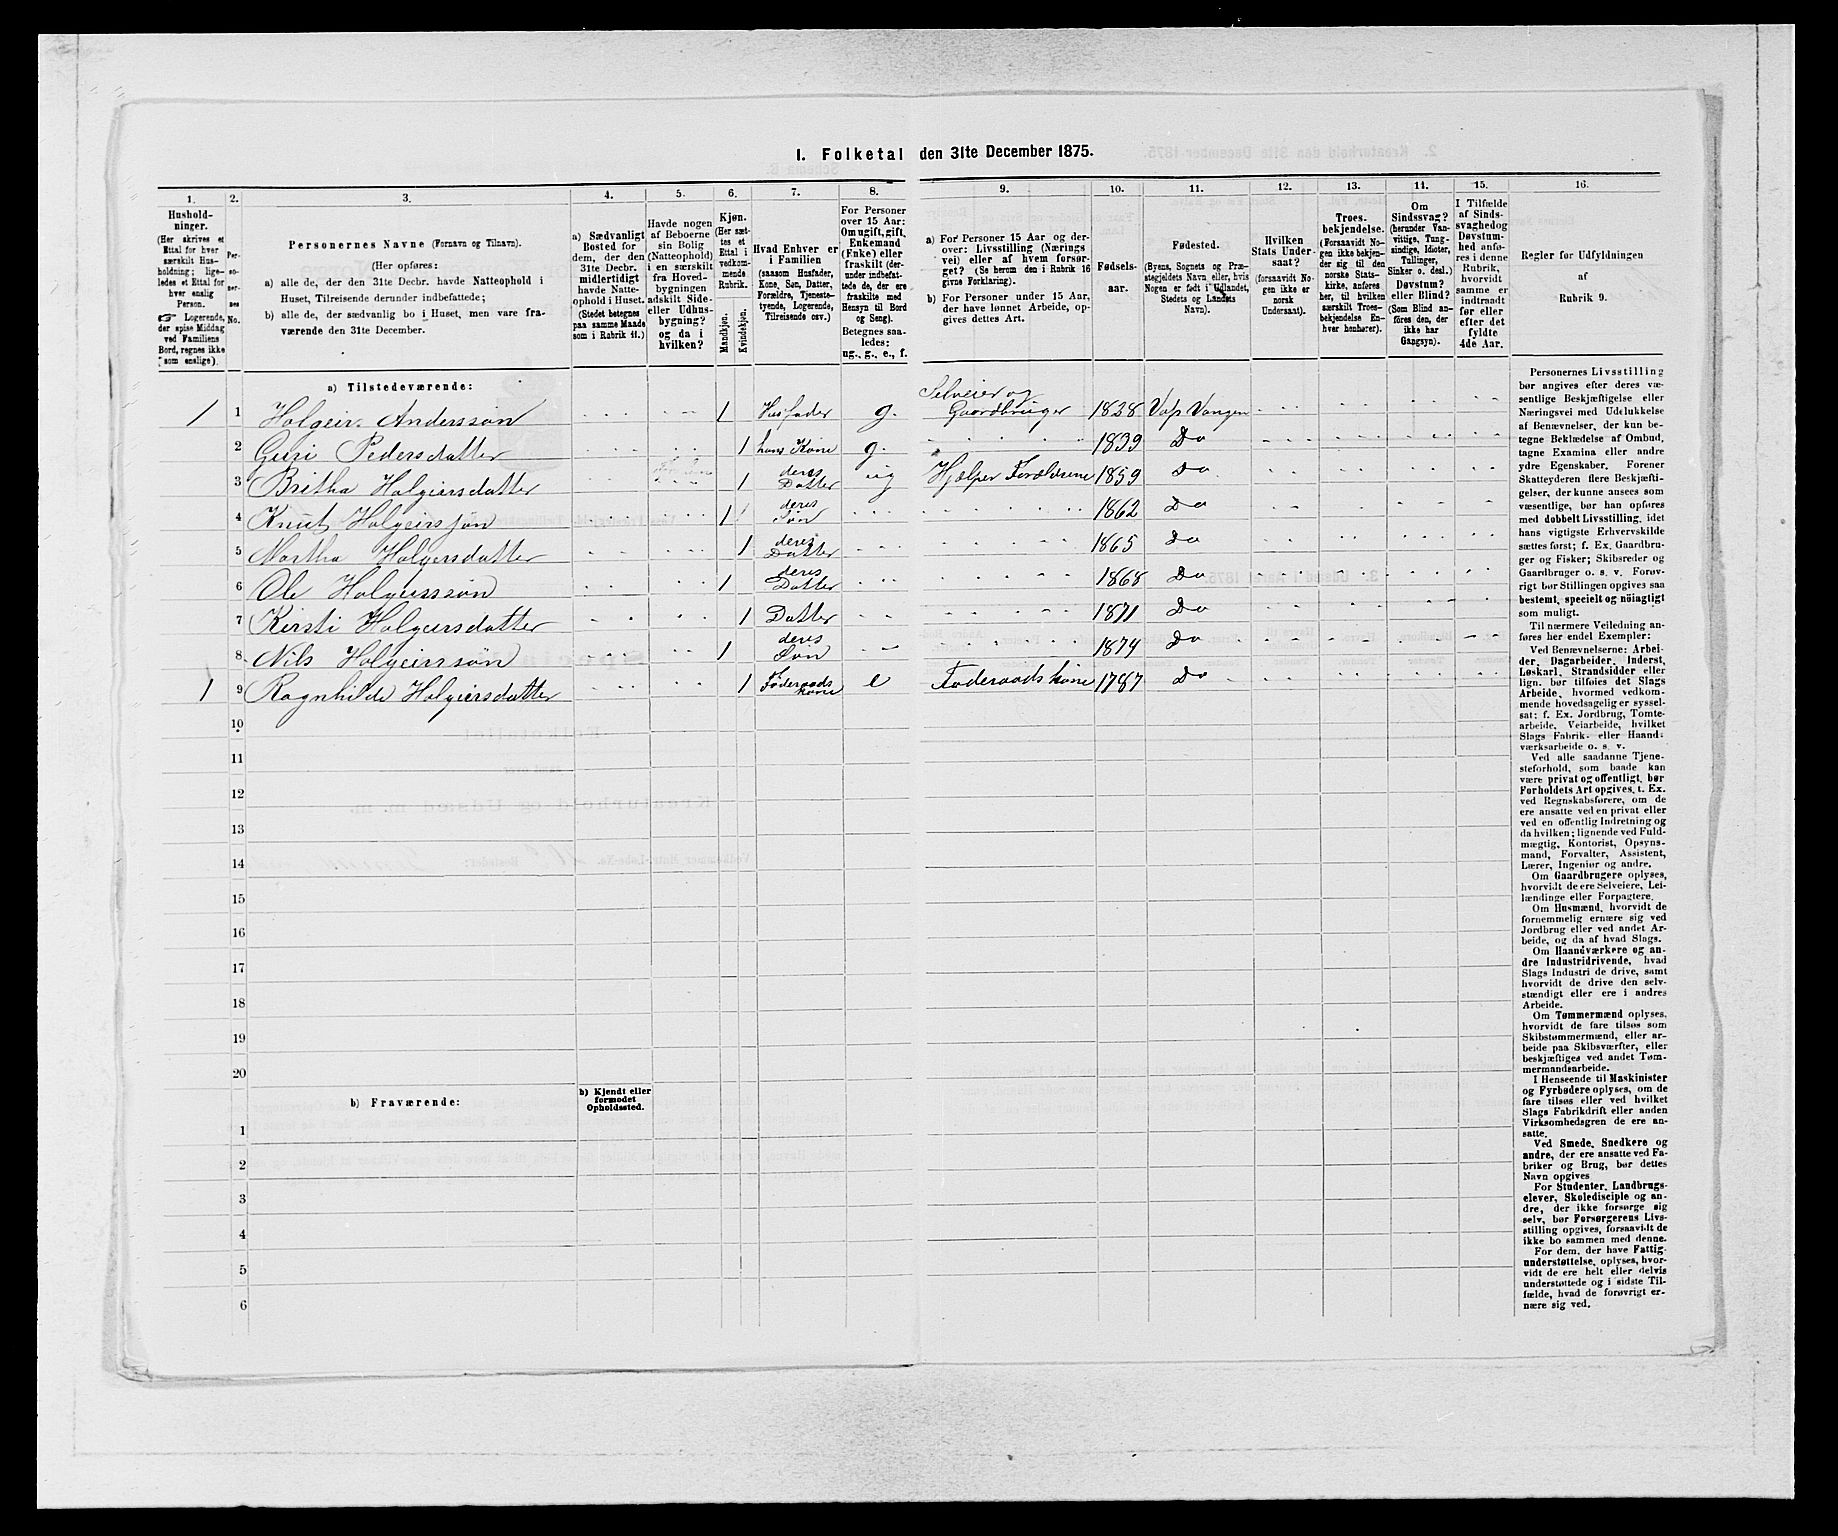 I. Folketal den 31te December 1875.
1. 2. 3. 4. 5. 6. 7. 8. 9. 10. 11. 12. 13. 14. 15. 16.
Hushold-
ninger.
(Her skrives et
Ettal for hver
særskilt Hus-
holdning; lige-
ledes et Ettal for
hver enslig
Person.
☞ Logerende,
der spise Middag
ved Familiens
Bord, regnes ikke
som enslige).
Per-
so-
ner-
nes
No.
Personernes Navne (Fornavn og Tilnavn).
(Her opføres:
a) alle de, der den 31te Decbr. havde Natteophold i
Huset, Tilreisende derunder indbefattede;
b) alle de, der sædvanlig bo i Huset, men vare fra-
værende den 31te December.
a) Sædvanligt
Bosted for
dem, der den
31te Decbr.
midlertidigt
havde Natte-
ophold i Huset.
(Stedet betegnes
paa samme Maade
som i Rubrik 11.)
Havde nogen
af Beboerne
sin Bolig
(Natteophold)
i en særskilt
fra Hoved-
bygningen
adskilt Side-
eller Udhus-
bygning?
og da i
hvilken?
Kjøn.
(Her sæt-
tes et
Ettal i
vedkom-
mende
Rubrik.
Mandkjøn.
Kvindekjøn.
Hvad Enhver er
i Familien
(saasom Husfader,
Kone, Søn, Datter,
Forældre, Tjeneste-
tyende, Logerende,
Tilreisende osv.)
For Personer
over 15 Aar:
Om ugift, gift,
Enkemand
(Enke) eller
fraskilt (der-
under indbefat-
tede de, der ere
fraskilte med
Hensyn til Bord
og Seng).
Betegnes saa-
ledes:
ug., g., e., f.
a) For Personer 15 Aar og der-
over: Livsstilling (Nærings
vei) eller af hvem forsør-
get? (Se herom den i Rubrik 16
givne Forklaring).
b) For Personer under 15 Aar,
der have lønnet Arbeide, op-
gives dettes Art.
Fødsels-
aar.
Fødested.
(Byens, Sognets og Præ-
stegjeldets Navn eller, hvis
Nogen er født i Udlandet,
Stedets og Landets
Navn).
Hvilken
Stats Under-
saat?
(forsaavidt No-
gen ikke er
norsk
Undersaat).
Troes-
bekjendelse.
(Forsaavidt No-
gen ikke bekjen-
der sig til den
norske Stats-
kirke, anføres
her, til hvilken
særskilt Troes-
bekjendelse En-
hver henhører).
Om
Sindssvag?
(herunder Van-
vittige, Tung-
sindige, Idioter,
Tullinger,
Sinker o. desl.)
Døvstum?
eller Blind?
(Som Blind an-
føres den, der
ikke har
Gangsyn).
I Tilfælde
af Sinds-
svaghed og
Døvstum-
hed anfø-
res i denne
Rubrik,
hvorvidt
samme er
indtraadt
før eller
efter det
fyldte
4de Aar.
Regler for Udfyldningen
af
Rubrik 9.
a) Tilstedeværende:
Selveier og
1 1 Holgeir Anderssøn 1 Husfader g. Gaardbruger 1828 Vass Vangen
2 Guri Pedersdatter 1 hans Kone g. 1839 Do
3 Britha Holgiersdatter 1 deres Datter ug Hjælper Forældrene 1859 Do
4 Knut Holgeirssøn 1 deres Søn 1862 Do
5 Martha Holgersdatter 1 deres Datter 1865 Do
6 Ole Holgeirssøn 1 deres Datter 1868 Do
7 Kirsti Holgeirsdatter 1 Datter 1871 Do
8 Nils Holgeirssøn 1 deres Søn 1874 Do
1 9 Ragnhilde Holgiersdatter 1 Føderaads kone e Føderaads kone 1787 Do
10
11
12
13
14
15
16
17
18
19
20
b) Fraværende:
b) Kjendt eller
formodet
Opholdssted.
1
2
3
4
5
6
Personernes Livsstilling
bør angives efter deres væ-
sentlige Beskjæftigelse eller
Næringsvei med Udelukkelse
af Benævnelser, der kun be-
tegne Beklædelse af Ombud,
tagne Examina eller andre
ydre Egenskaber. Forener
Skatteyderen flere Beskjæfti-
gelser, der kunne ansees som
væsentlige, bør han opføres
med dobbelt Livsstilling, idet
hans vigtigste Erhvervskilde
sættes først; f. Ex. Gaardbru-
ger og Fisker; Skibsreder og
Gaardbruger o. s. v. Forøv-
rigt bør Stillingen opgives saa
bestemt, specielt og nöiagtigt
som muligt.
Til nærmere Veiledning an-
føres her endel Exempler:
Ved Benævnelserne: Arbei-
der, Dagarbeider, Inderst,
Løskarl, Strandsidder eller
lign. bør tilføies det Slags
Arbeide, hvormed vedkom-
mende hovedsagelig er syssel-
sat; f. Ex. Jordbrug, Tomte-
arbeide, Veiarbeide, hvilket
Slags Fabrik- eller Haand-
værksarbeide o. s. v.
Ved alle saadanne Tjene-
steforhold, som baade kan
være privat og offentligt, bør
Forholdets Art opgives, t. Ex.
ved Regnskabsførere, om de
ere ansatte ved en privat eller
ved en offentlig Indretning og
da hvilken; lignende ved Fuld-
mægtig, Kontorist, Opsyns-
mand, Forvalter, Assistent,
Lærer, Ingeniør og andre.
Om Gaardbrugere oplyses,
hvorvidt de ere Selveiere, Lei-
lændinge eller Forpagtere.
Om Husmænd, hvorvidt de
fornemmelig ernære sig ved
Jordbrug eller ved andet Ar-
beide, og da af hvad Slags.
Om Haandværkere og an-
dre Industridrivende, hvad
Slags Industri de drive, samt
hvorvidt de drive den selv-
stændigt eller ere i andres
Arbeide.
Om Tømmermænd oplyses,
hvorvidt de fare tilsøs som
Skibstømmermænd, eller ar-
beide paa Skibsværfter, eller
beskjæftiges ved andet Tøm-
mermandsarbeide.
I Henseende til Maskinister
og Fyrbødere oplyses, om de
fare tilsøs eller ved hvilket
Slags Fabrikdrift eller anden
Virksomhedsgren de ere an-
satte.
Ved Smede, Snedkere og
andre, der ere ansatte ved Fa-
briker og Brug, bør dettes
Navn opgives
For Studenter, Landbrugs-
elever, Skoledisciple og an-
dre, der ikke forsørge sig
selv, bør Forsørgerens Livs-
stilling opgives, forsaavidt de
ikke bo sammen med denne.
For dem, der have Fattig-
understøttelse, oplyses, hvor-
vidt de ere helt eller delvis
understøttede og i sidste Til-
fælde, hvad de forøvrigt er-
nære sig ved.